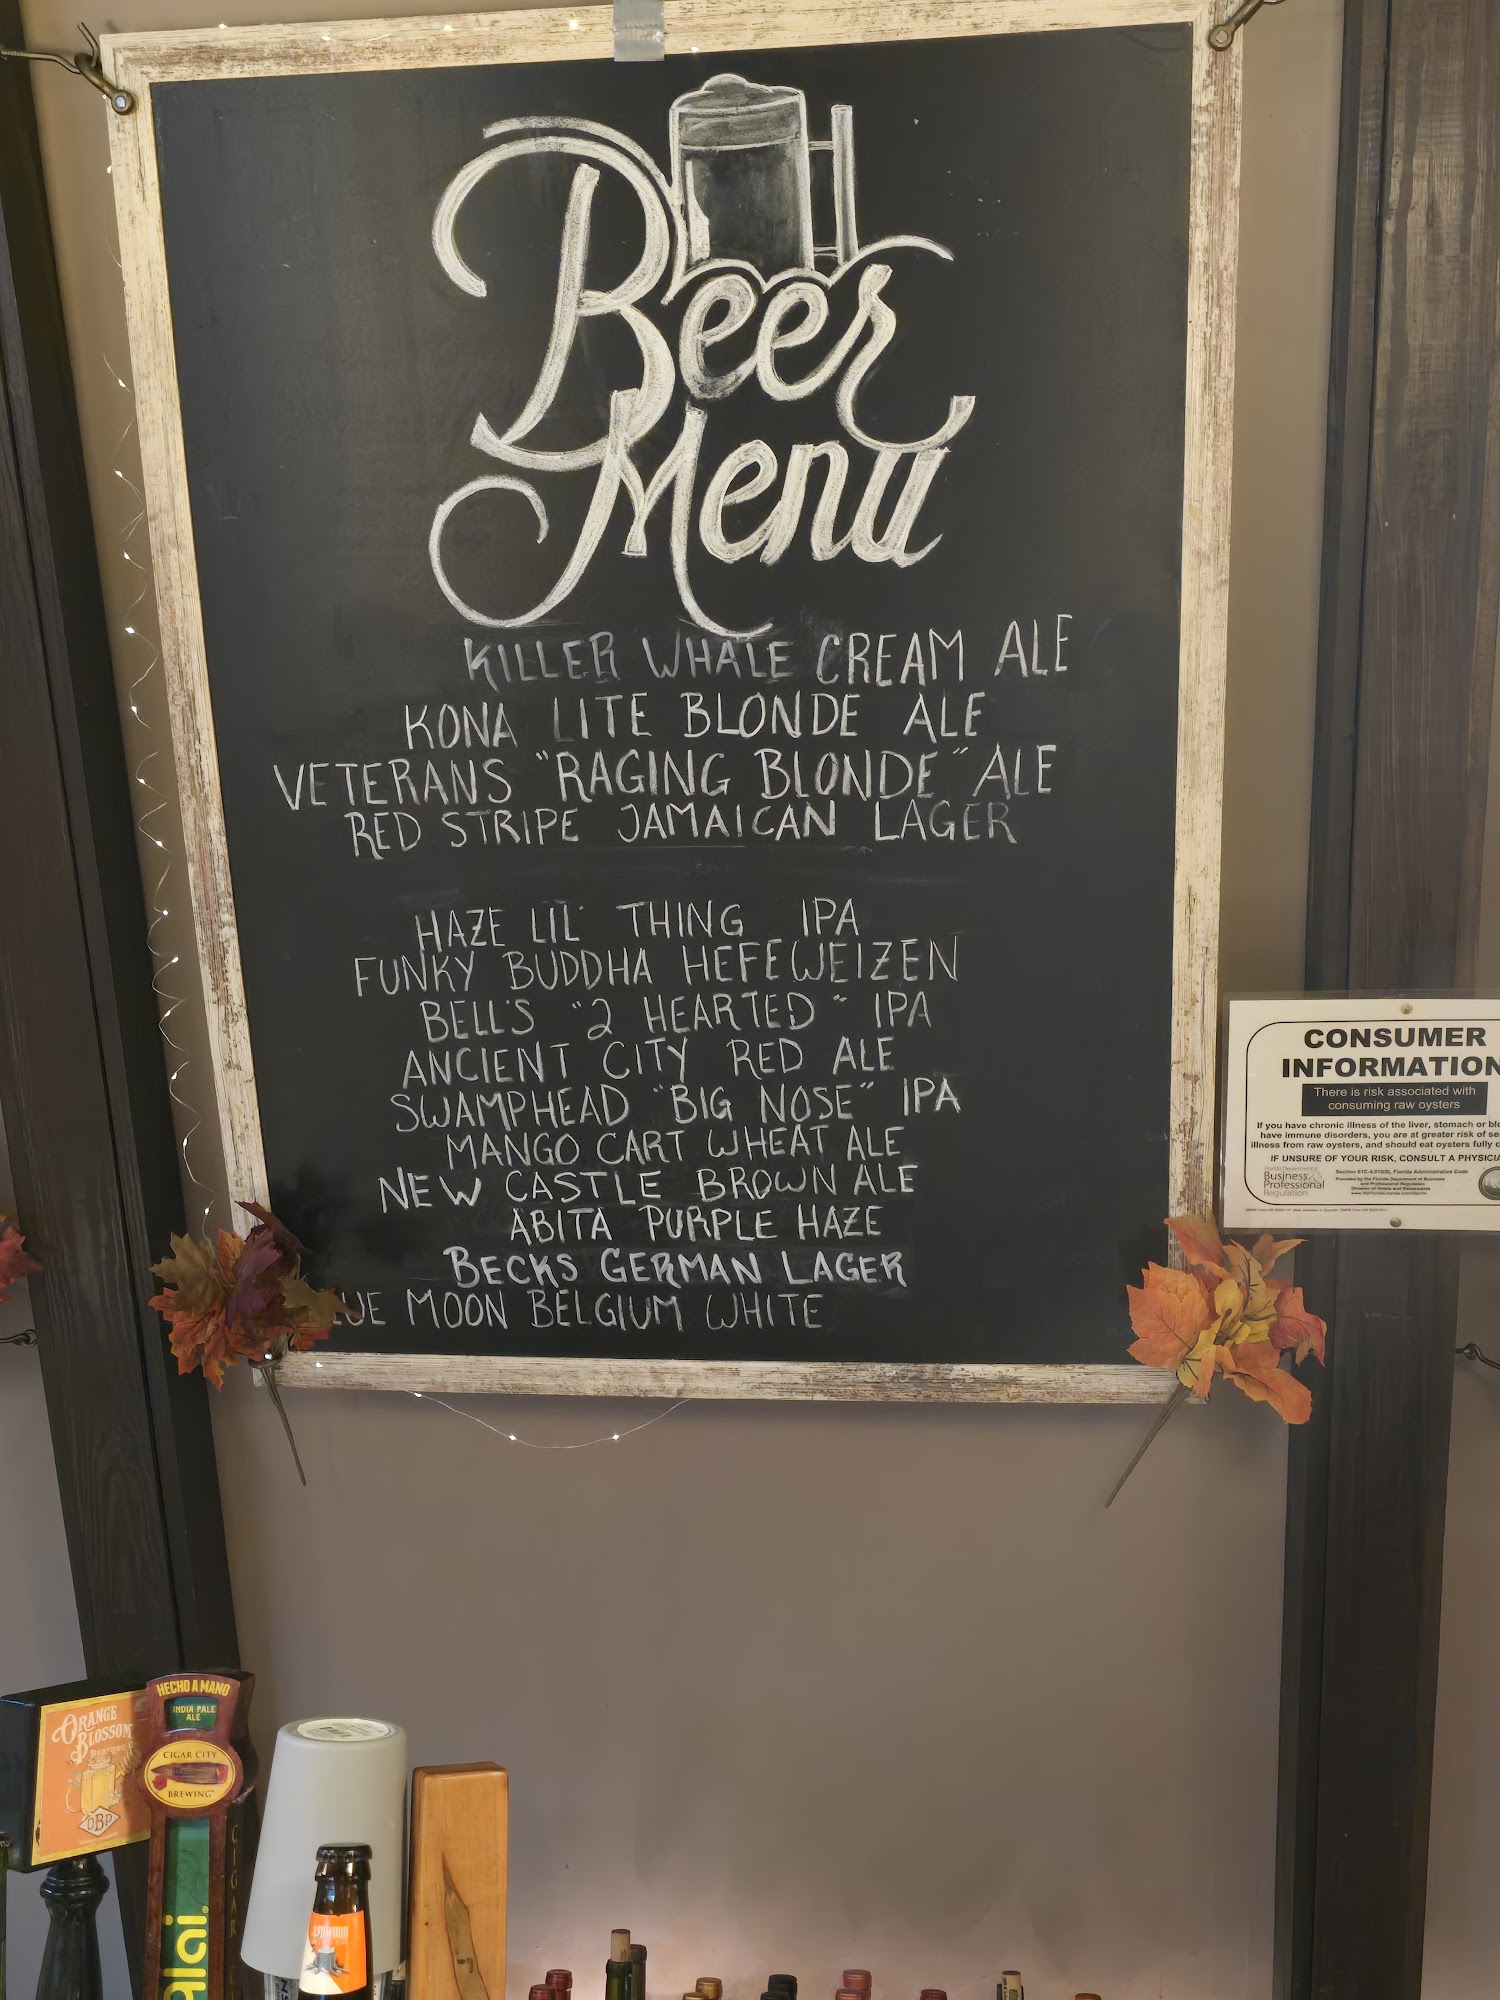 Beer
Menu
KILLER WHALE CREAM ALE
KONA LITE BLONDE ALE
VETERANS "RAGING BLONDE" ALE
RED STRIPE JAMAICAN LAGER
HAZE LIL' THING IPA
FUNKY BUDDHA HEFEWEIZEN
BELL'S "2 HEARTED" IPA
ANCIENT CITY RED ALE
SWAMPHEAD "BIG NOSE" IPA
MANGO CART WHEAT ALE
NEW CASTLE BROWN ALE
ABITA PURPLE HAZE
BECKS GERMAN LAGER
UE MOON BELGIUM WHITE
CONSUMER
INFORMATION
There is risk associated with
consuming raw oysters
If you have chronic illness of the liver, stomach or blo
have immune disorders, you are at greater risk of se
illness from raw oysters, and should eat oysters fully c
IF UNSURE OF YOUR RISK, CONSULT A PHYSICIA
Florida Department of
Business
Professional
Regulation
Section 61C-4.010(8), Florida Administrative Code
Provided by the Florida Department of Business
and Professional Regulation
Division of Hotels and Restaurants
HECHO A MANO
INDIA PALE
ALE
CIGAR CITY
BREWING
CIGAR
alai.
ORANGE
BLOSSOM
OBP